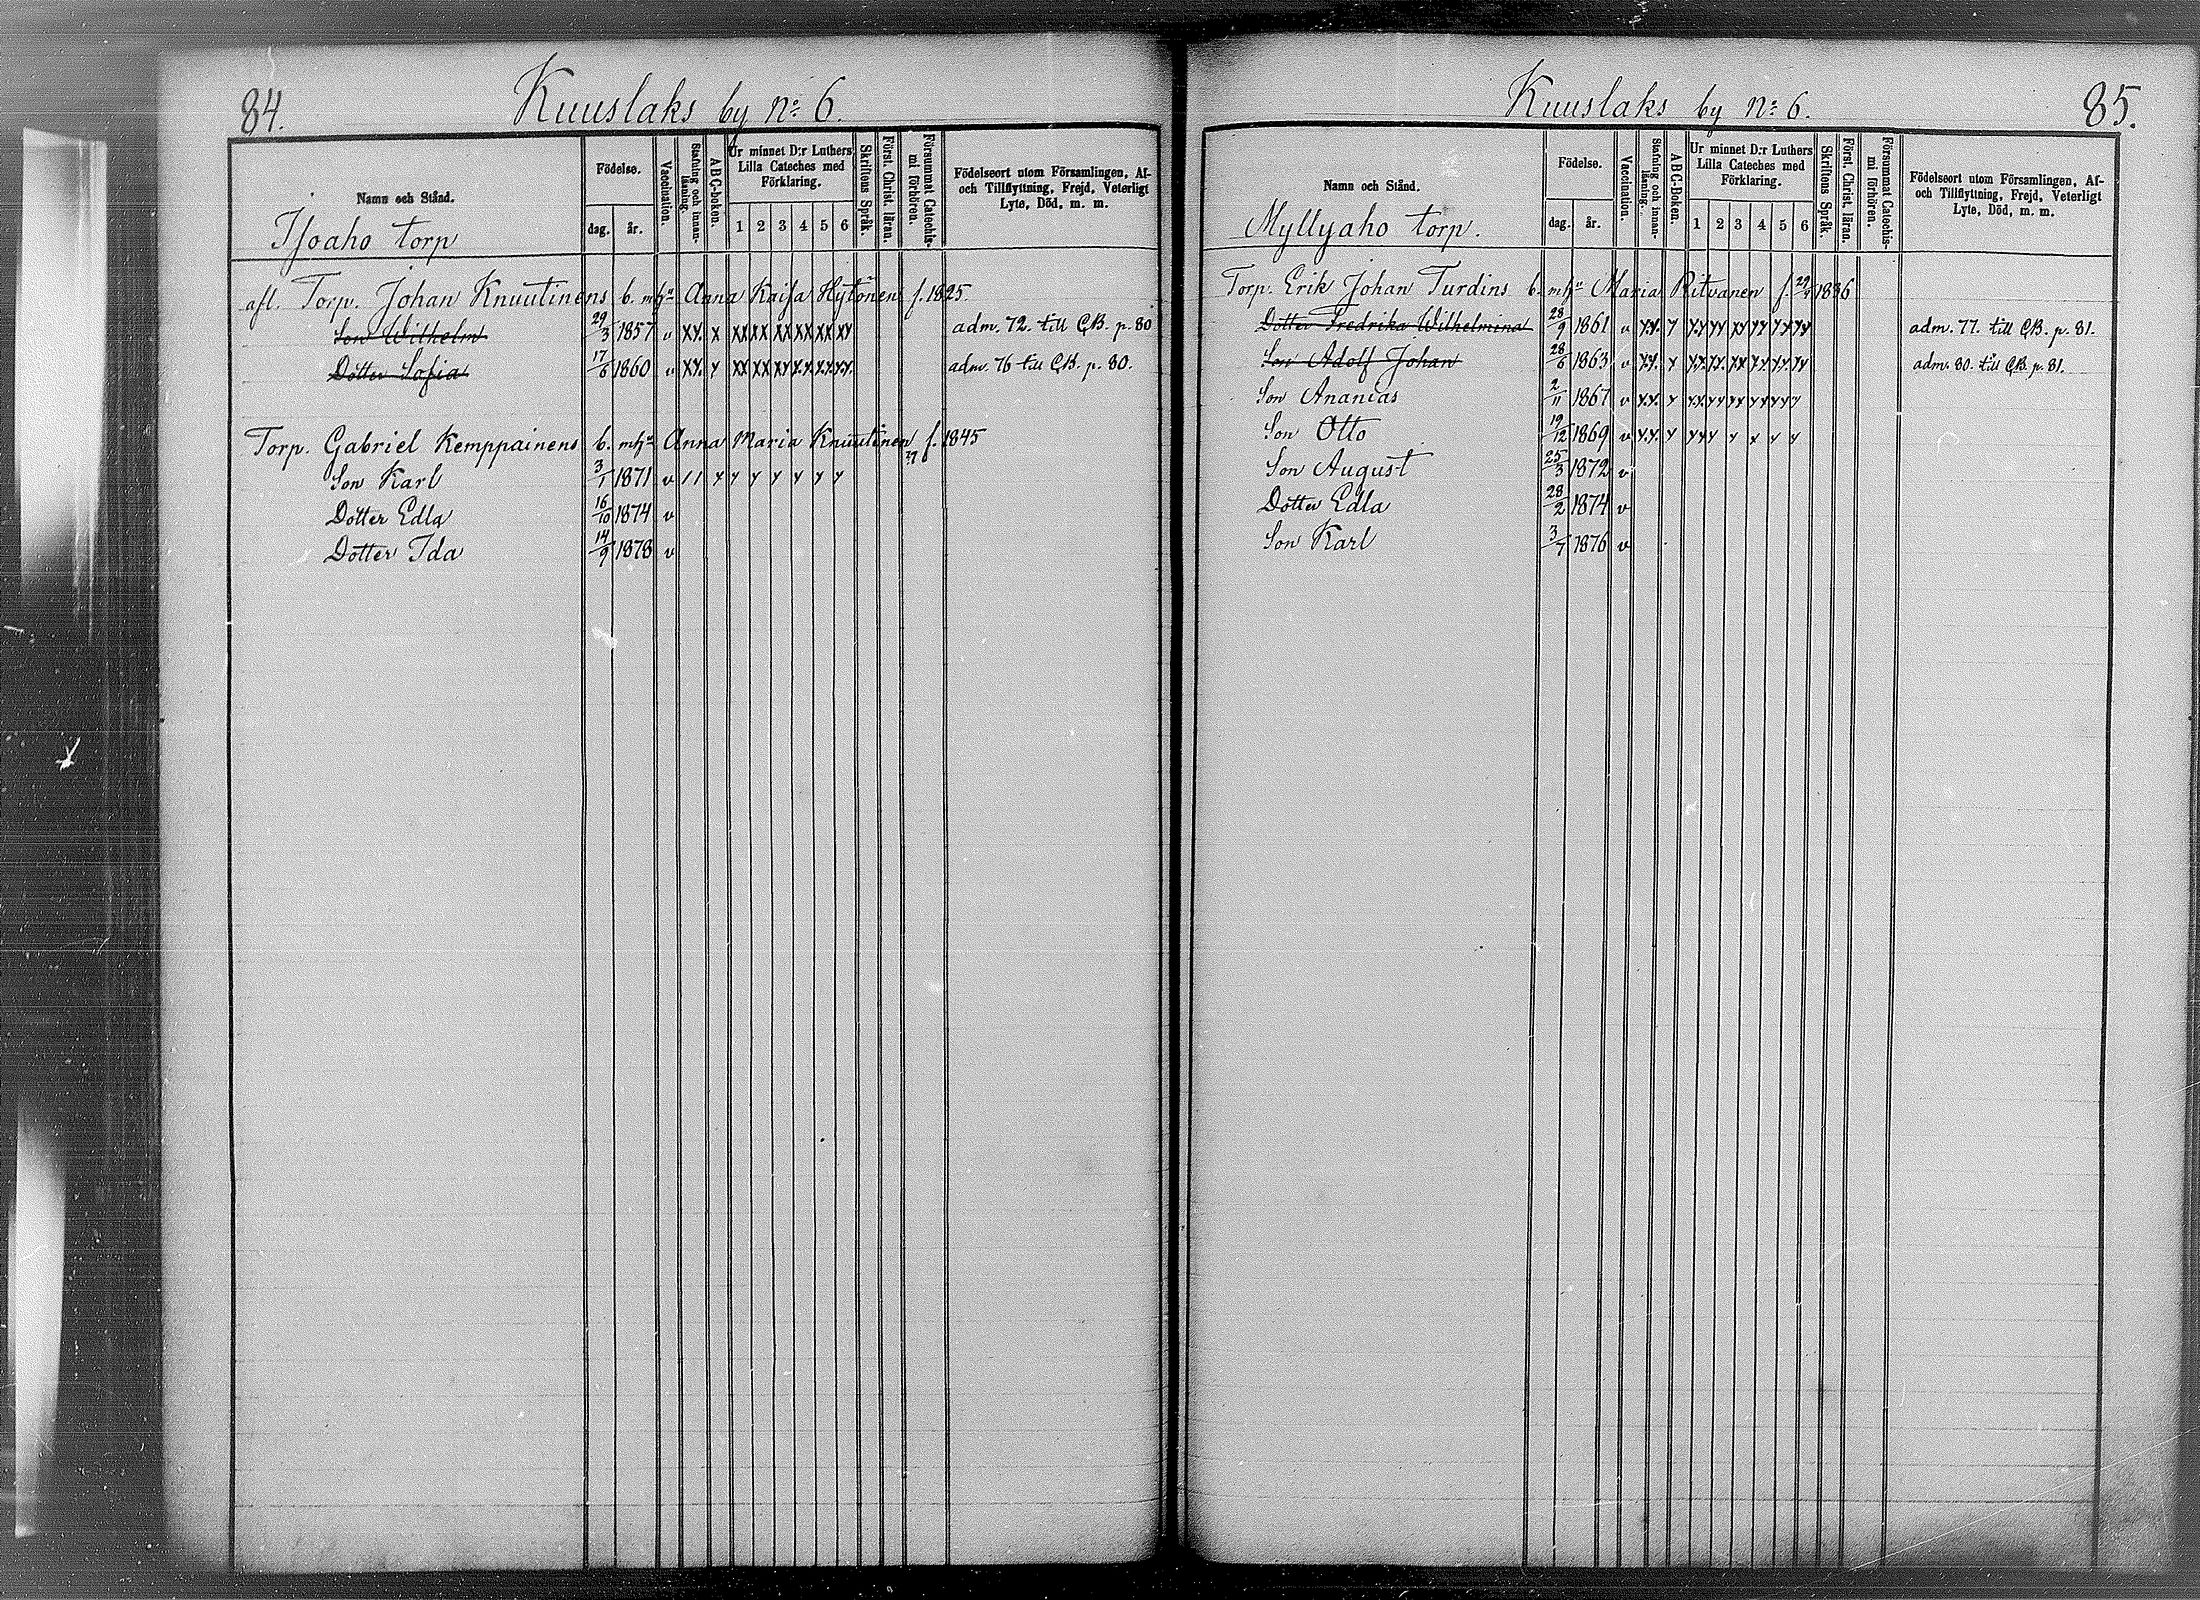 84.
Kuuslaks by No 6.
Namn och Stånd.
Födelse.
dag. år.
Vaccination.
Stafning och innanläsning.
ABC-boken.
Ur minnet D:r Luthers Lilla Cateches med Förklaring.
1 2 3 4 5 6
Skriftens Språk.
Först. Christ. läran.
Försummat Catechismi förhören.
Födelseort utom Församlingen, Af- och Tillflyttning, Frejd, Veterligt Lyte, Död, m. m.
Isoaho torp
afl. Torp. Johan Knuutinens b. m hu Anna Kaisa Hytönen f. 1825.
Son Wilhelm 29/3 1857 v xx x xx xx xx xx xx xy adm. 72. till CB. p. 80
Dotter Sofia 17/6 1860 v xx y xx xx xy xx xx xx adm. 76 till CB. p. 80.
Torp. Gabriel Kemppainens b. m hu Anna Maria Knuutinen f. 1845
Son Karl 3/1 1871 v // y y y y y y y
Dotter Edla 16/10 1874 v
Dotter Ida 14/9 1878 v
85.
Kuuslaks by No 6.
Namn och Stånd.
Födelse.
dag. år.
Vaccination.
Stafning och innanläsning.
ABC-boken.
Ur minnet D:r Luthers Lilla Cateches med Förklaring.
1 2 3 4 5 6
Skriftens Språk.
Först. Christ. läran.
Försummat Catechismi förhören.
Födelseort utom Församlingen, Af- och Tillflyttning, Frejd, Veterligt Lyte, Död, m. m.
Myllyaho torp.
Torp. Erik Johan Turdins b. m hu Maria Ritvanen f. 1836
Dotter Fredrika Wilhelmina 28/9 1861 v xx y xx yy xy yy yy yy adm. 77. till CB. p. 81.
Son Adolf Johan 28/6 1863 v xx y xx xx xx yy yy yy adm. 80. till CB. p. 81.
Son Ananias 2/11 1867 v xx y xx yy yy yy yy y
Son Otto 19/12 1869 v xx y yy y y y y y
Son August 25/3 1872 v
Dotter Edla 28/2 1874 v
Son Karl 3/7 1876 v